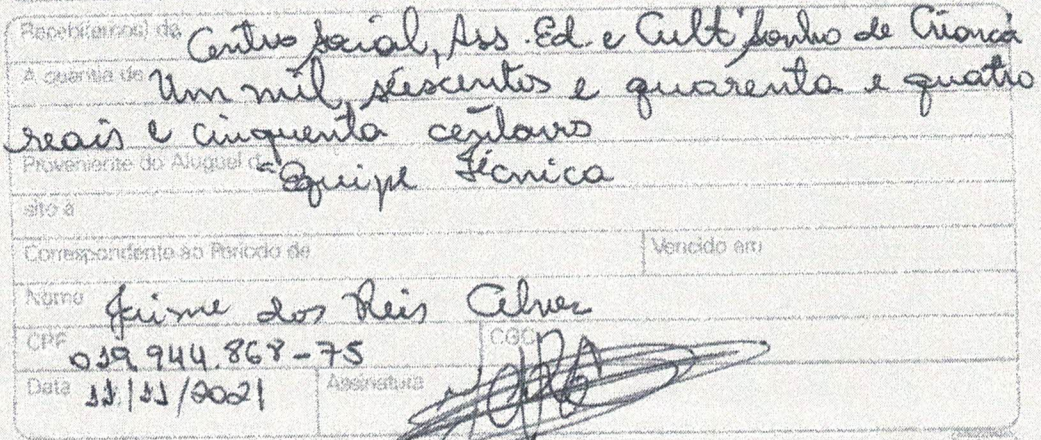 Recebi(emos) de Centro Social, Ass. Ed. e Cult Sonho de Criança
A quantia de Um mil, seiscentos e quarenta e quatro
reais e cinquenta centavos
Proveniente do Aluguel d Equipe Técnica
sito à
Correspondente ao Período de Vencido em
Nome Jaime dos Reis Alves
CPF 019.944.868-75 CGC
Data 11/11/2021 Assinatura